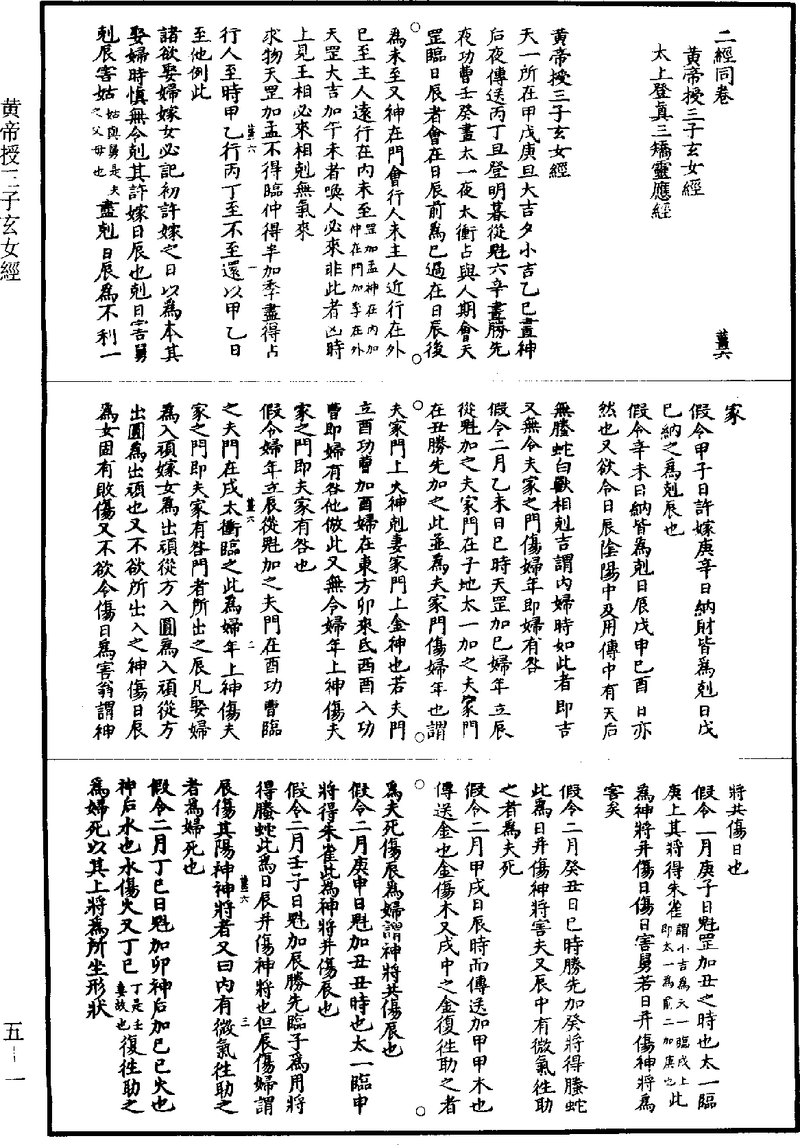 二經同卷
黃帝授三子玄女經
太上登真三矯靈應經
薑六
黃帝授三子玄女經
天一所在甲戊庚旦大吉夕小吉乙巳晝神
后夜傳送丙丁旦登明暮從魁六辛晝勝先
夜功曹壬癸晝太一夜太衝占與人期會天
罡臨日辰者會在日辰前為巳過在日辰後
為未至又神在門會行人未主人近行在外
巳至主人遠行在内未至罡加孟神在内加仲在門加季在外
天罡大吉加午未者喚人必來非此者凶時
上見王相必來相剋無氣來
求物天罡加孟不得臨仲得半加季盡得占
薑六 一
行人至時甲乙行丙丁至不至還以甲乙日
至他例此
諸欲娶婦嫁女必記初許嫁之日以為本其
娶婦時慎無令剋其許嫁日辰也剋日害舅
剋辰害姑姑與舅是夫之父母也盡剋日辰為不利一
家
假令甲子日許嫁庚辛日納財皆為剋日戊
巳納之為剋辰也
假令辛未日納皆為剋日辰戊申巳酉日亦
然也又欲令日辰陰陽中及用傳中有天后
無螣蛇白獸相剋吉謂内婦時如此者即吉
又無令夫家之門傷婦年即婦有咎
假令二月乙未日巳時天罡加巳婦年立辰
從魁加之夫家門在子地太一加之夫家門
在丑勝先加之此並為夫家門傷婦年也謂
夫家門上火神剋妻家門上金神也若夫門
立酉功曹加酉婦在東方卯來氐西酉入功
曹即婦有咎他倣此又無令婦年上神傷夫
家之門即夫家有咎也
假令婦年立辰從魁加之夫門在酉功曹臨
薑六 二
之夫門在戌太衝臨之此為婦年上神傷夫
家之門即夫家有咎門者所出之辰凡娶婦
為入頑嫁女為出頑從方入圓為入頑從方
出圓為出頑也又不欲所出入之神傷日辰
為女固有敗傷又不欲令傷日為害翁謂神
將共傷日也
假令一月庚子日魁罡加丑之時也太一臨
庚上其將得朱雀謂小吉為天一臨戌上即太一為前二加庚也此
為神將并傷日傷日害舅若日并傷神將為
害矣
假令二月癸丑日巳時勝先加癸將得螣蛇
此為日并傷神將害夫又辰中有微氣徃助
之者為夫死
假令二月甲戌日辰時而傳送加甲甲木也
傳送金也金傷木又戌中之金復徃助之者
為夫死傷辰為婦謂神將共傷辰也
假令二月庚申日魁加丑丑時也太一臨申
將得朱雀此為神將并傷辰也
假令二月壬子日魁加辰勝先臨子為用將
得螣蛇此為日辰并傷神將也但辰傷婦謂
薑六 三
辰傷其陽神神將者又曰内有微氣徃助之
者為婦死也
假令二月丁巳日魁加卯神后加巳巳火也
神后水也水傷火又丁巳丁是壬妻故也復徃助之
為婦死以其上將為所坐形狀
黄帝授三子玄女經
五—一